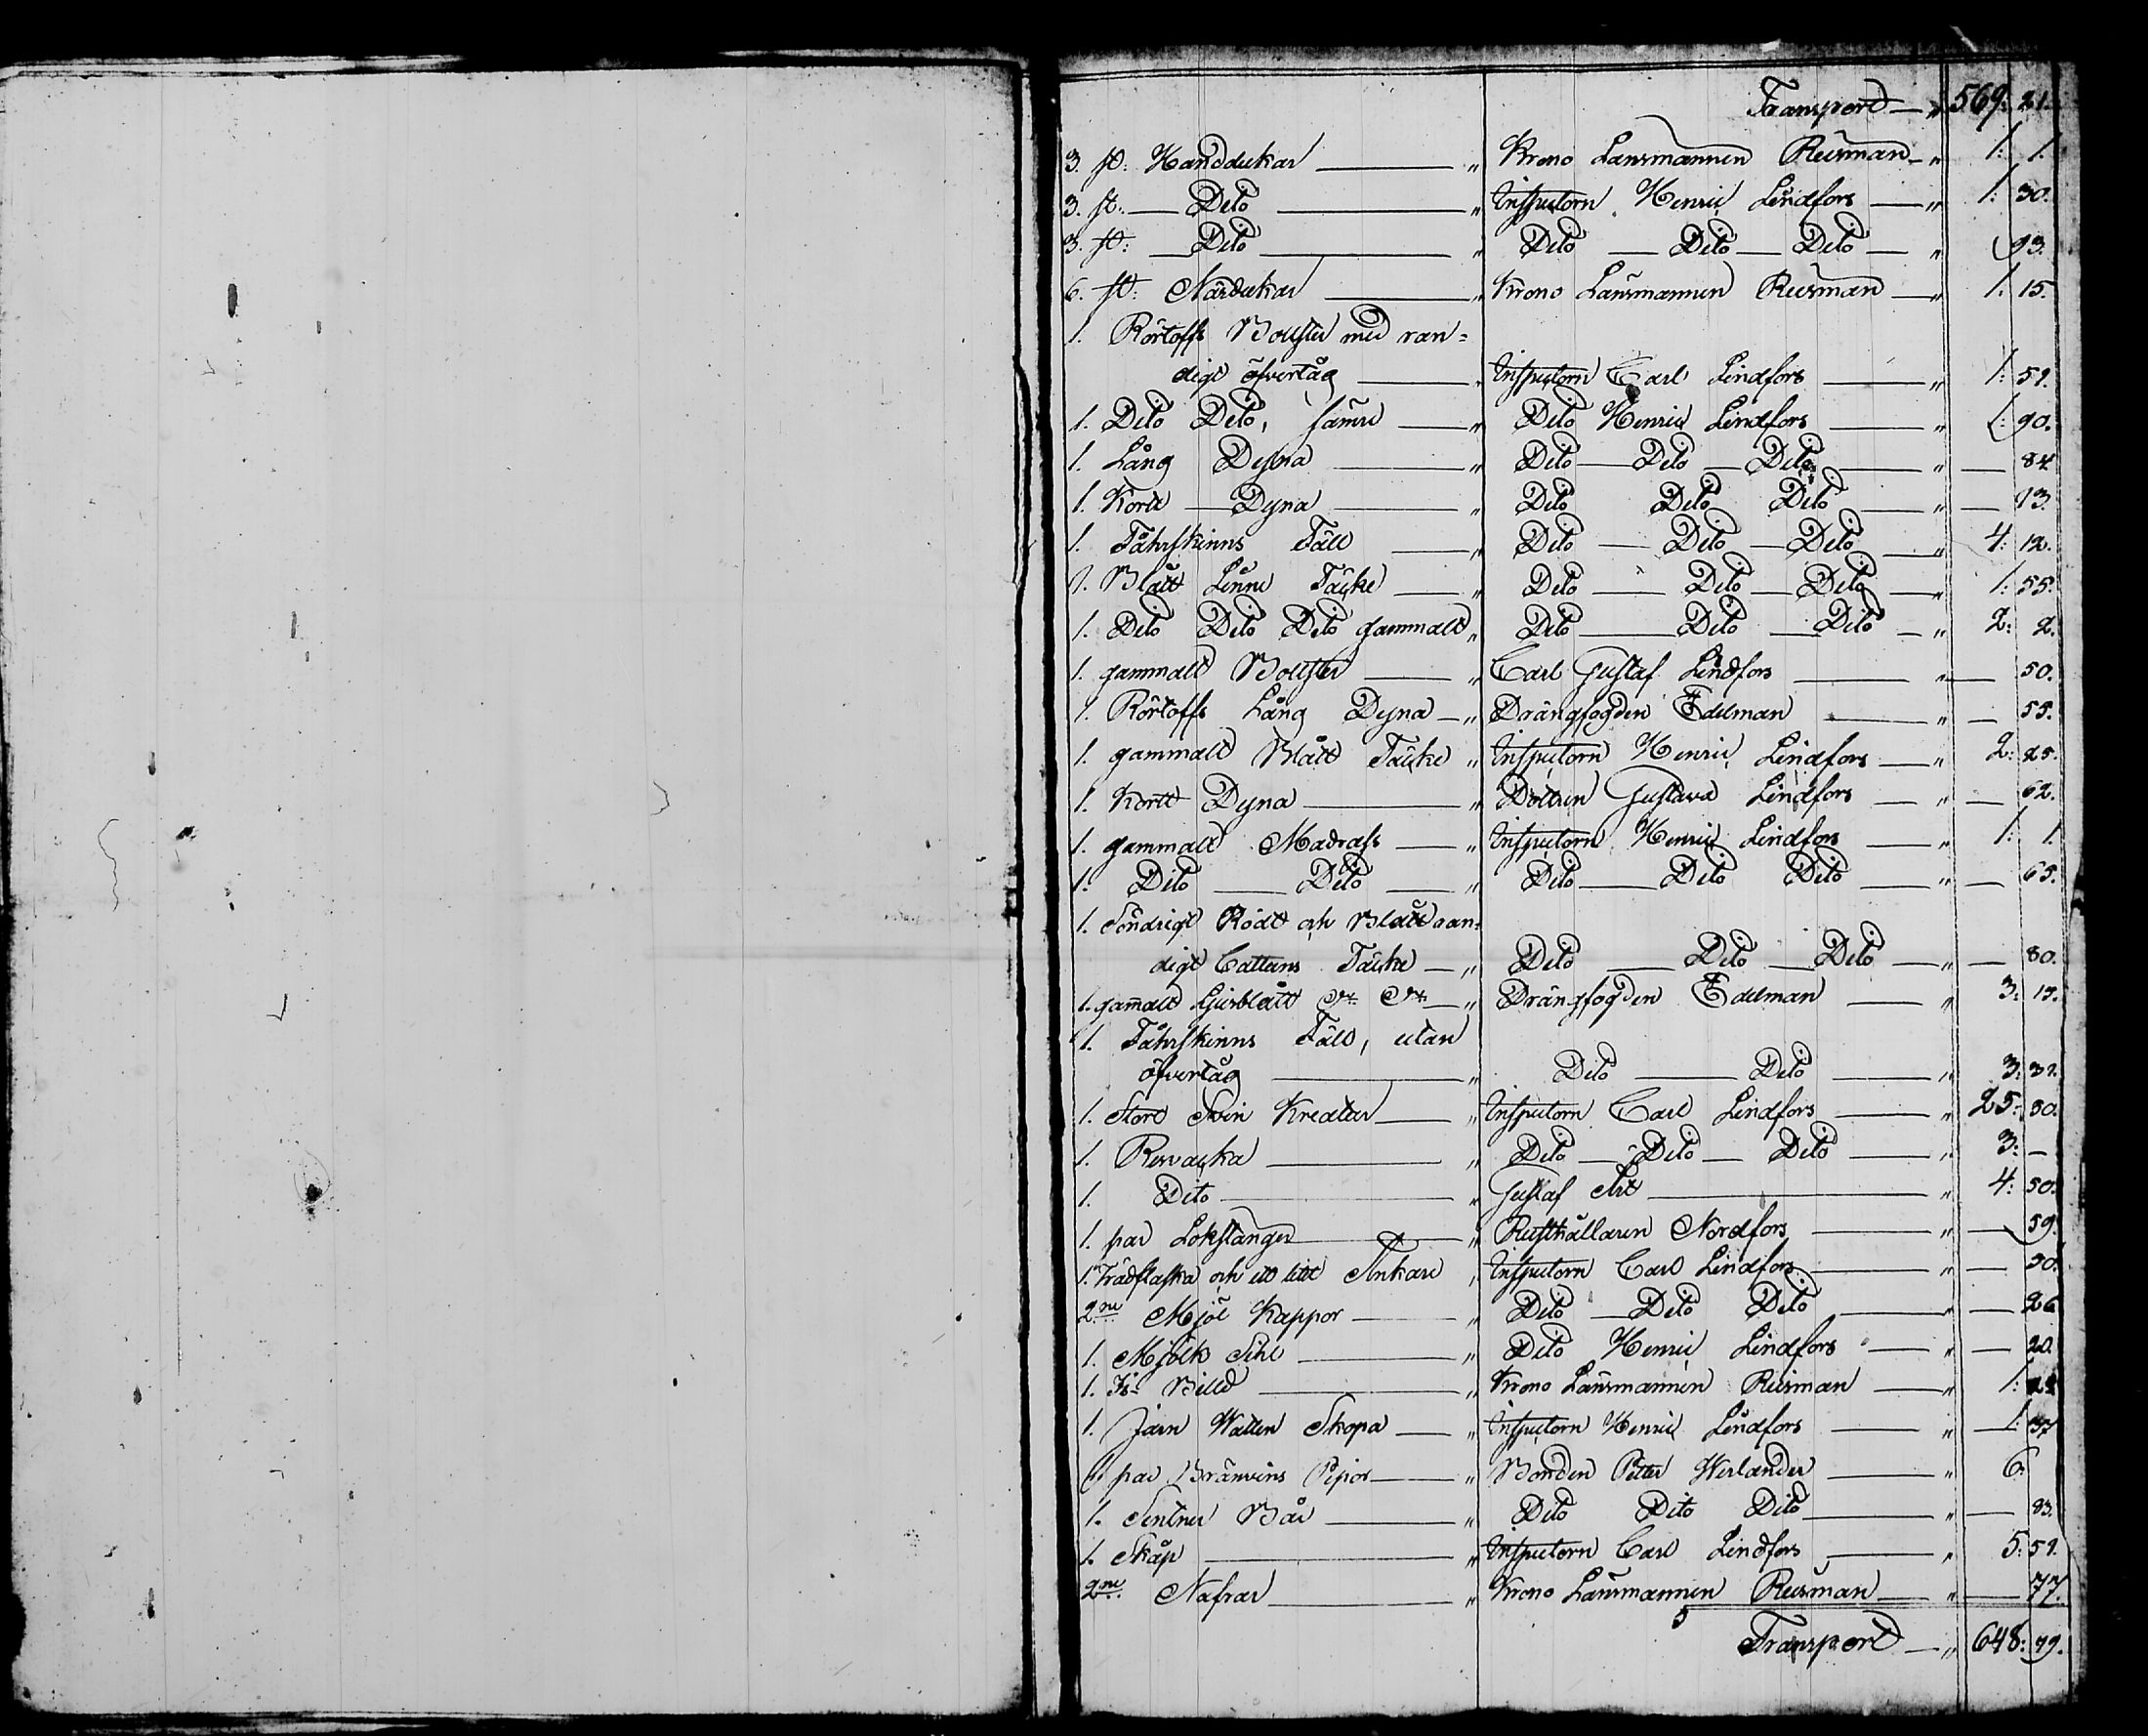 Transport — " 569: 21.
3. st: Handdukar — " Krono Länsmannen Reisman — " 1: 1.
3. st: — Dito — " Inspectorn Henric Lindfors — " 1: 30.
3. st: — Dito — " Dito — Dito — Dito — " 93.
6. st: Närdukar — " Krono Länsmannen Reisman — " 1: 15.
1. Rörtoffs Bolster med ran-
digt öfvertåg — " Inspectorn Carl Lindfors — " 1: 51.
1. Dito Dito, sämre — " Dito Henric Lindfors — " 1: 90.
1. Lång Dyna — " Dito — Dito — Dito — " — 84.
1. Kort — Dyna — " Dito Dito Dito — " — 13.
1. Fåhrskinns Fäll — " Dito — Dito — Dito — " 4: 12.
1. Blått Linne Täcke — " Dito — Dito — Dito — " 1: 55.
1. Dito Dito Dito gammalt " Dito — Dito — Dito — " 2: 2.
1. gammalt Bolster — " Carl Gustaf Lindfors — " — 50.
1. Rörtoffs Lång Dyna — " Drängfogden Edelman — " — 55.
1. gammalt Blått Täcke " Inspectorn Henric Lindfors — " 2: 25.
1. Kort Dyna — " Dottren Gustava Lindfors — " — 62.
1. gammalt Madrass — " Inspectorn Henric Lindfors — " 1: 1.
1. Dito — Dito — " Dito — Dito Dito — " — 65.
1. Söndrigt Rödt och Blått ran-
digt Cattuns Täcke — " Dito — Dito — Dito — " — 80.
1. gamalt Ljusblått Do Do — " Drängfogden Edelman — " 3: 15.
1. Fåhrskinns Fäll, utan
öfvertåg — " Dito — Dito — " 3: 31.
1. Stort Svin Kreatur — " Inspectorn Carl Lindfors — " 25: 50.
1. Resvacka — " Dito — Dito — Dito — " 3: —
1. Dito — " Gustaf — " 4: 50.
1. par Lokstänger — " Rusthållaren Nordfors — " — 59.
1. Trädflaska och ett litet Ankare " Inspectorn Carl Lindfors — " — 30.
2ne Mjöl Kappor — " Dito — Dito Dito — " — 26
1. Mjölk Sihl — " Dito Henric Lindfors — " — 20.
1. Is Bill — " Krono Länsmannen Reisman — " 1:
1. Järn Watten Skopa — " Inspectorn Henric Lindfors — " — 37
1. par Bränvins Pipor — " Bonden Petter Werlander — " 6:
1. Sentner Bår — " Dito Dito Dito — " — 83.
1. Skåp — " Inspectorn Carl Lindfors — " 5: 51.
2ne Nafrar — " Krono Länsmannen Reisman — " — 77.
Transport — " 648: 79.